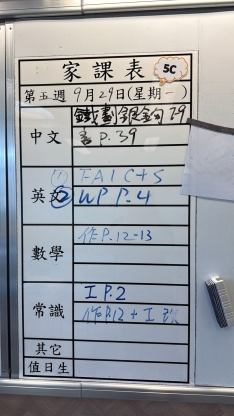 家課表 5C
第五週 9月29日(星期一)
鐵劃銀鈎 P.39
中文 書 P.39
① FAI C+S
英文 ② WP P.4
數學 作P.12-13
I P.2
常識 作P.12 + I
其它
值日生